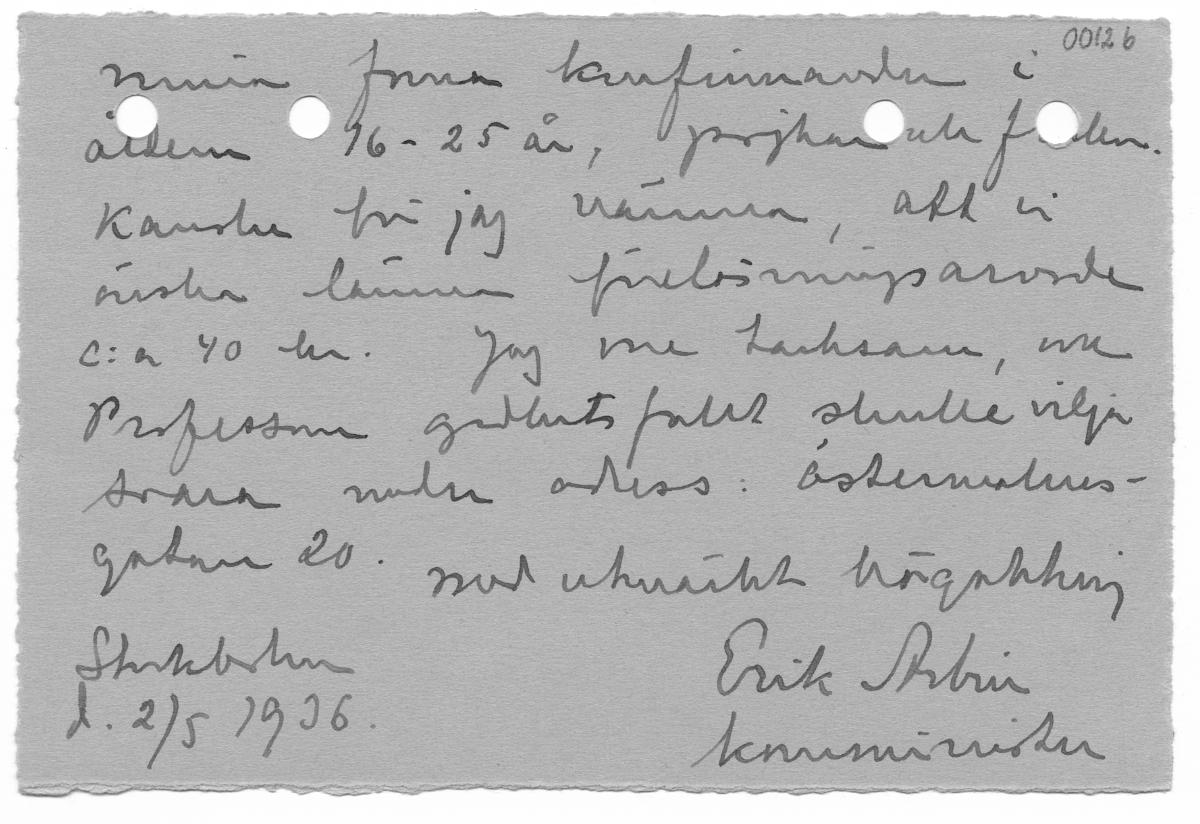 00126
mina forna konfirmander i
åldern 16-25 år, pojkar och
Kanske får jag nämna, att vi
önska lämna föreläsningsarvode
c:a 40 kr. Jag vore tacksam, om
Professorn godhetsfullt skulle vilja
svara under adress: Östermalms-
gatan 20.
med utmärkt högaktning
Stockholm
d. 2/5 1936.
Erik Arbin
komminister